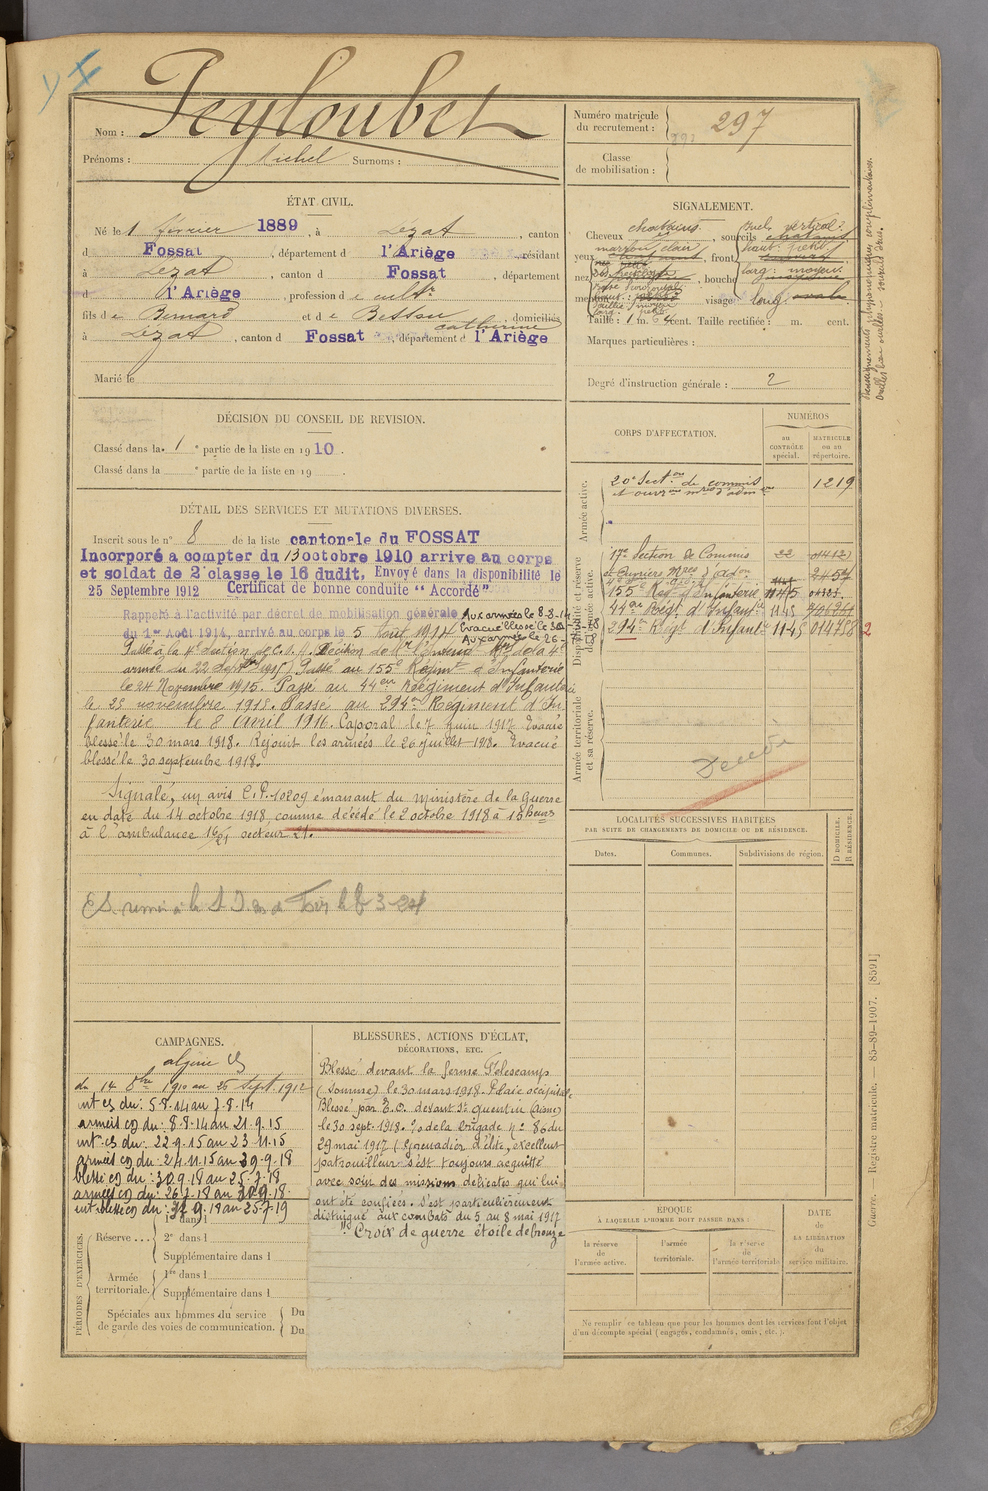 Peyloubet
Nom :
Prénoms : Michel Surnoms :
Numéro matricule du recrutement : 297
Classe de mobilisation :
ÉTAT CIVIL.
Né le 1 février 1889, à Lézat, canton
d Fossat, département d l'Ariège, résidant
à Lézat, canton d Fossat, département
d l'Ariège, profession d e cultr
fils d e Bernard et d e Bettou catherine, domiciliés
à Lézat, canton d Fossat, département d l'Ariège
Marié le
SIGNALEMENT.
Cheveux chatains, sourcils chatains
yeux marron clair, front
nez, bouche
menton, visage long ovale
Taille : 1 m. 64 cent. Taille rectifiée : m. cent.
Marques particulières :
Degré d'instruction générale : 2
Renseignements physionomiques complémentaires.
DÉCISION DU CONSEIL DE REVISION.
Classé dans la 1e partie de la liste en 1910.
Classé dans la e partie de la liste en 19
DÉTAIL DES SERVICES ET MUTATIONS DIVERSES.
Inscrit sous le n° 8 de la liste cantonale du FOSSAT
Incorporé a compter du 13 octobre 1910 arrive au corps
et soldat de 2e classe le 16 dudit. Envoyé dans la disponibilité le
25 Septembre 1912 Certificat de bonne conduite " Accordé "
Rappelé à l'activité par décret de mobilisation générale Aux armées le 8-8-14
du 1er Août 1914, arrivé au corps le 5 Août 1914 Evacué blessé le 30-3-18
Aux armées le 26-7-18
Passé à la 4e Section de C.O.A. Décision de Mr l'Intend. Mre de la 4e
armée du 22 Septbre 1915) Passé au 155e Régimt d'Infanterie
le 24 Novembre 1915. Passé au 44eme Régiment d'Infanterie
le 25 novembre 1915. Passé au 294me Régiment d'In-
fanterie le 8 avril 1916. Caporal le 7 juin 1917 Evacué
blessé le 30 mars 1918. Rejoint les armées le 26 juillet 1918. Evacué
blessé le 30 septembre 1918.
Signalé, un avis C.P. 10209 émanant du Ministère de la Guerre
en date du 14 octobre 1918, comme décédé le 2 octobre 1918 à 15 heures
à l'ambulance 16/21 secteur 21.
CORPS D'AFFECTATION.
NUMÉROS
au CONTRÔLE spécial.
MATRICULE ou au répertoire.
Armée active.
20e Secton de commis 1219
et ouvrers mres d'adm
Disponibilité et réserve de l'armée active.
17e Section de Commis 22 01412
et Ouvriers Mres d'adon 2457
155e Régt d'Infanterie 1145
44me Régt d'Infantie 1145
294e Régt d'Infantie 1145 014758 2
Armée territoriale et sa réserve.
Décédé
LOCALITÉS SUCCESSIVES HABITÉES
PAR SUITE DE CHANGEMENTS DE DOMICILE OU DE RÉSIDENCE.
Dates. Communes. Subdivisions de région. D DOMICILE. R RÉSIDENCE.
CAMPAGNES.
algérie CS
du 14 8bre 1910 au 25 Sept 1912
int cs du : 5-8-14 au 7-8-14
armées cd du : 8-8-14 au 21-9-15
int. cs du : 22-9-15 au 23-11-15
armées cd du : 24-11-15 au 30-9-18
blessé cd du : 30.9.18 au 25-7-18
armées cd du : 26-7-18 au 30-9-18
int blessé cd du :
BLESSURES, ACTIONS D'ÉCLAT, DÉCORATIONS, ETC.
Blessé devant la ferme Filescamps
(Somme) le 30 mars 1918. Plaie occipitale
Blessé par E.O. devant St Quentin (Aisne)
le 30 sept. 1918. O de la brigade N° 86 du
29 mai 1917 (Grenadier d'élite, excellent
patrouilleur s'est toujours acquitté
avec soin des missions délicates qui lui
ont été confiées. S'est particulièrement
distingué aux combats du 5 au 8 mai 1917
" Croix de guerre étoile de bronze
PÉRIODES D'EXERCICES.
1re dans l
Réserve ... 2e dans l
Supplémentaire dans l
Armée territoriale. 1re dans l
Supplémentaire dans l
Spéciales aux hommes du service de garde des voies de communication. Du
Du
ÉPOQUE
À LAQUELLE L'HOMME DOIT PASSER DANS :
la réserve de l'armée active.
l'armée territoriale.
la réserve de l'armée territoriale
DATE de LA LIBÉRATION du service militaire.
Ne remplir ce tableau que pour les hommes dont les services font l'objet
d'un décompte spécial (engagés, condamnés, omis, etc.).
Guerre. — Registre matricule. — 85-89-1907. [8591]